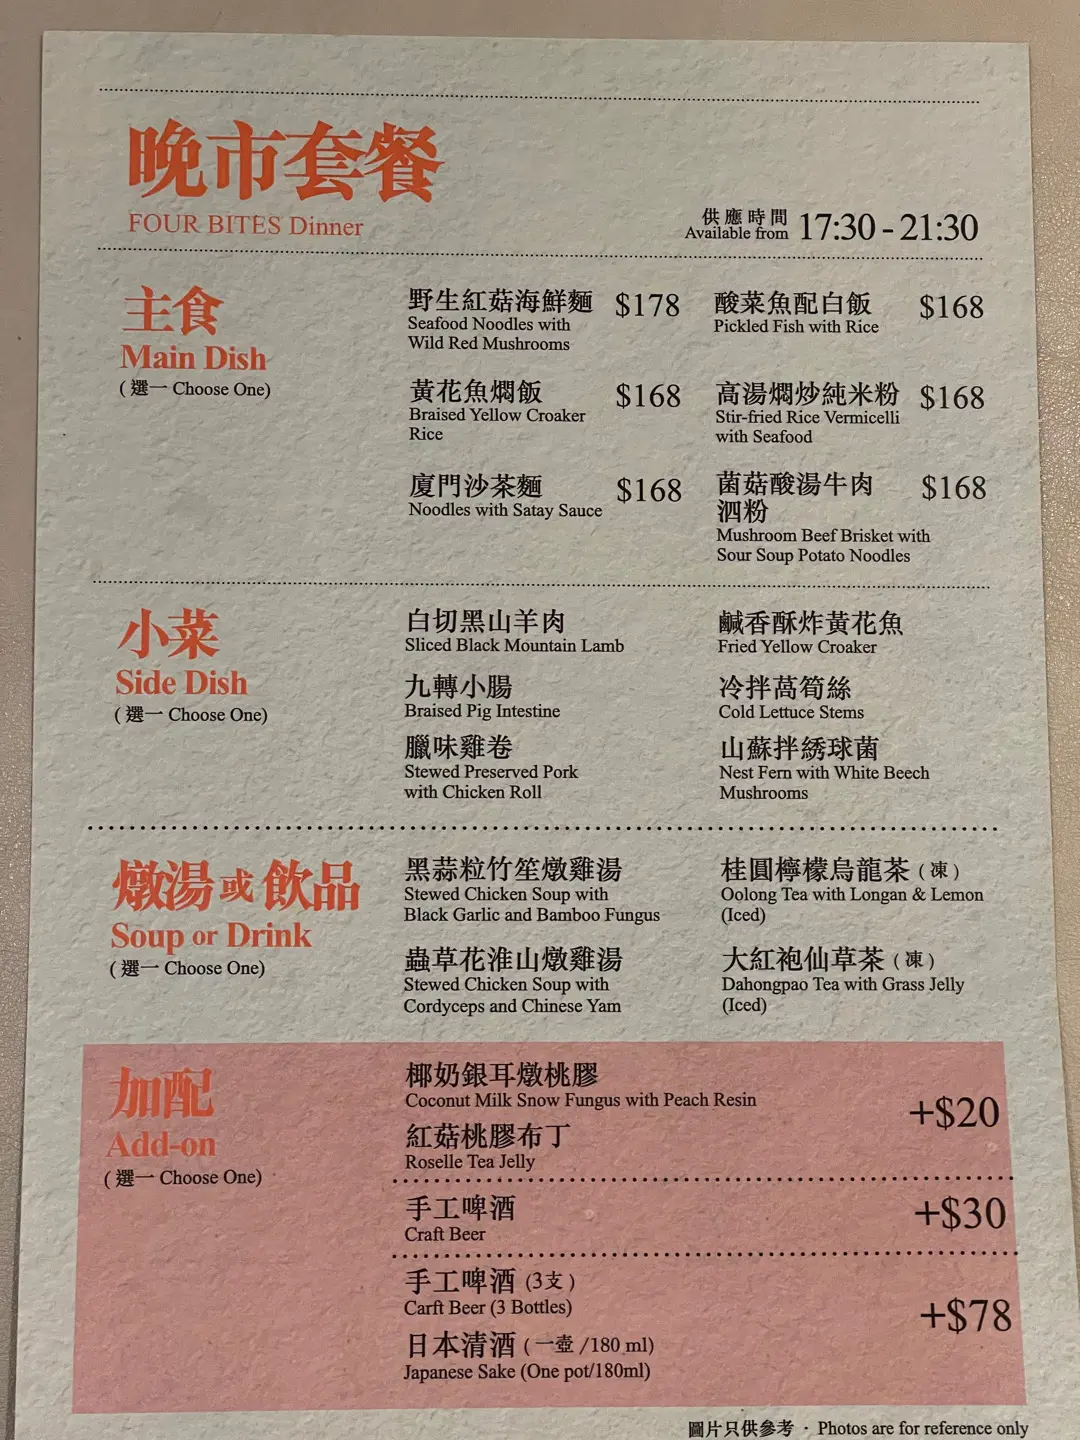 晚市套餐
FOUR BITES Dinner
供應時間
Available from 17:30 - 21:30
主食
Main Dish
( 選一 Choose One)
野生紅菇海鮮麵 $178
Seafood Noodles with
Wild Red Mushrooms
酸菜魚配白飯 $168
Pickled Fish with Rice
黃花魚燜飯 $168
Braised Yellow Croaker
Rice
高湯燜炒純米粉 $168
Stir-fried Rice Vermicelli
with Seafood
廈門沙茶麵 $168
Noodles with Satay Sauce
菌菇酸湯牛肉 $168
泗粉
Mushroom Beef Brisket with
Sour Soup Potato Noodles
小菜
Side Dish
( 選一 Choose One)
白切黑山羊肉
Sliced Black Mountain Lamb
鹹香酥炸黃花魚
Fried Yellow Croaker
九轉小腸
Braised Pig Intestine
冷拌萵筍絲
Cold Lettuce Stems
臘味雞卷
Stewed Preserved Pork
with Chicken Roll
山蘇拌綉球菌
Nest Fern with White Beech
Mushrooms
燉湯或飲品
Soup or Drink
( 選一 Choose One)
黑蒜粒竹笙燉雞湯
Stewed Chicken Soup with
Black Garlic and Bamboo Fungus
桂圓檸檬烏龍茶 ( 凍 )
Oolong Tea with Longan & Lemon
(Iced)
蟲草花淮山燉雞湯
Stewed Chicken Soup with
Cordyceps and Chinese Yam
大紅袍仙草茶 ( 凍 )
Dahongpao Tea with Grass Jelly
(Iced)
加配
Add-on
( 選一 Choose One)
椰奶銀耳燉桃膠
Coconut Milk Snow Fungus with Peach Resin
紅菇桃膠布丁
Roselle Tea Jelly
+$20
手工啤酒
Craft Beer
+$30
手工啤酒 (3支 )
Carft Beer (3 Bottles)
日本清酒 ( 一壺 /180 ml)
Japanese Sake (One pot/180ml)
+$78
圖片只供參考 · Photos are for reference only